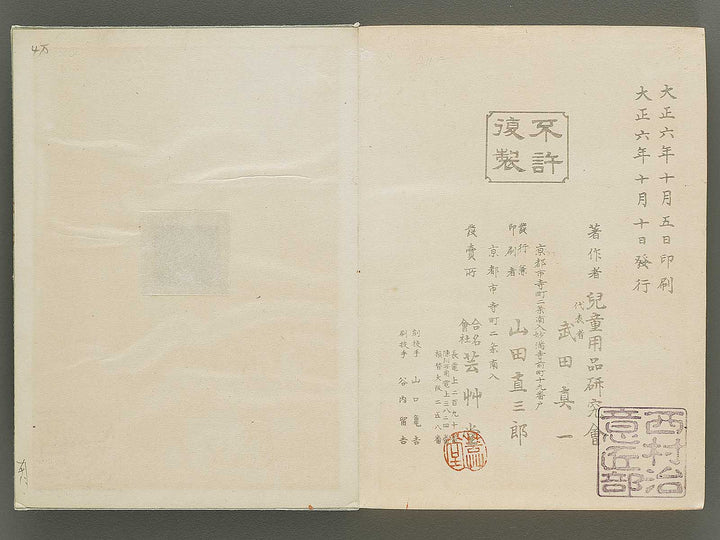 大正六年十月五日印刷
大正六年十月十日發行
不許
復製
著作者 兒童用品研究會
代表者 武田眞一
京都市寺町二条南入妙満寺前町十九番戸
發行兼
印刷者 山田直三郎
京都市寺町二条南入
發賣所
合名
會社 芸艸堂
長電上二百九十
振替大阪二五八番
彫技手 山口亀吉
刷技手 谷内留吉
芸艸堂
西村治
意匠部